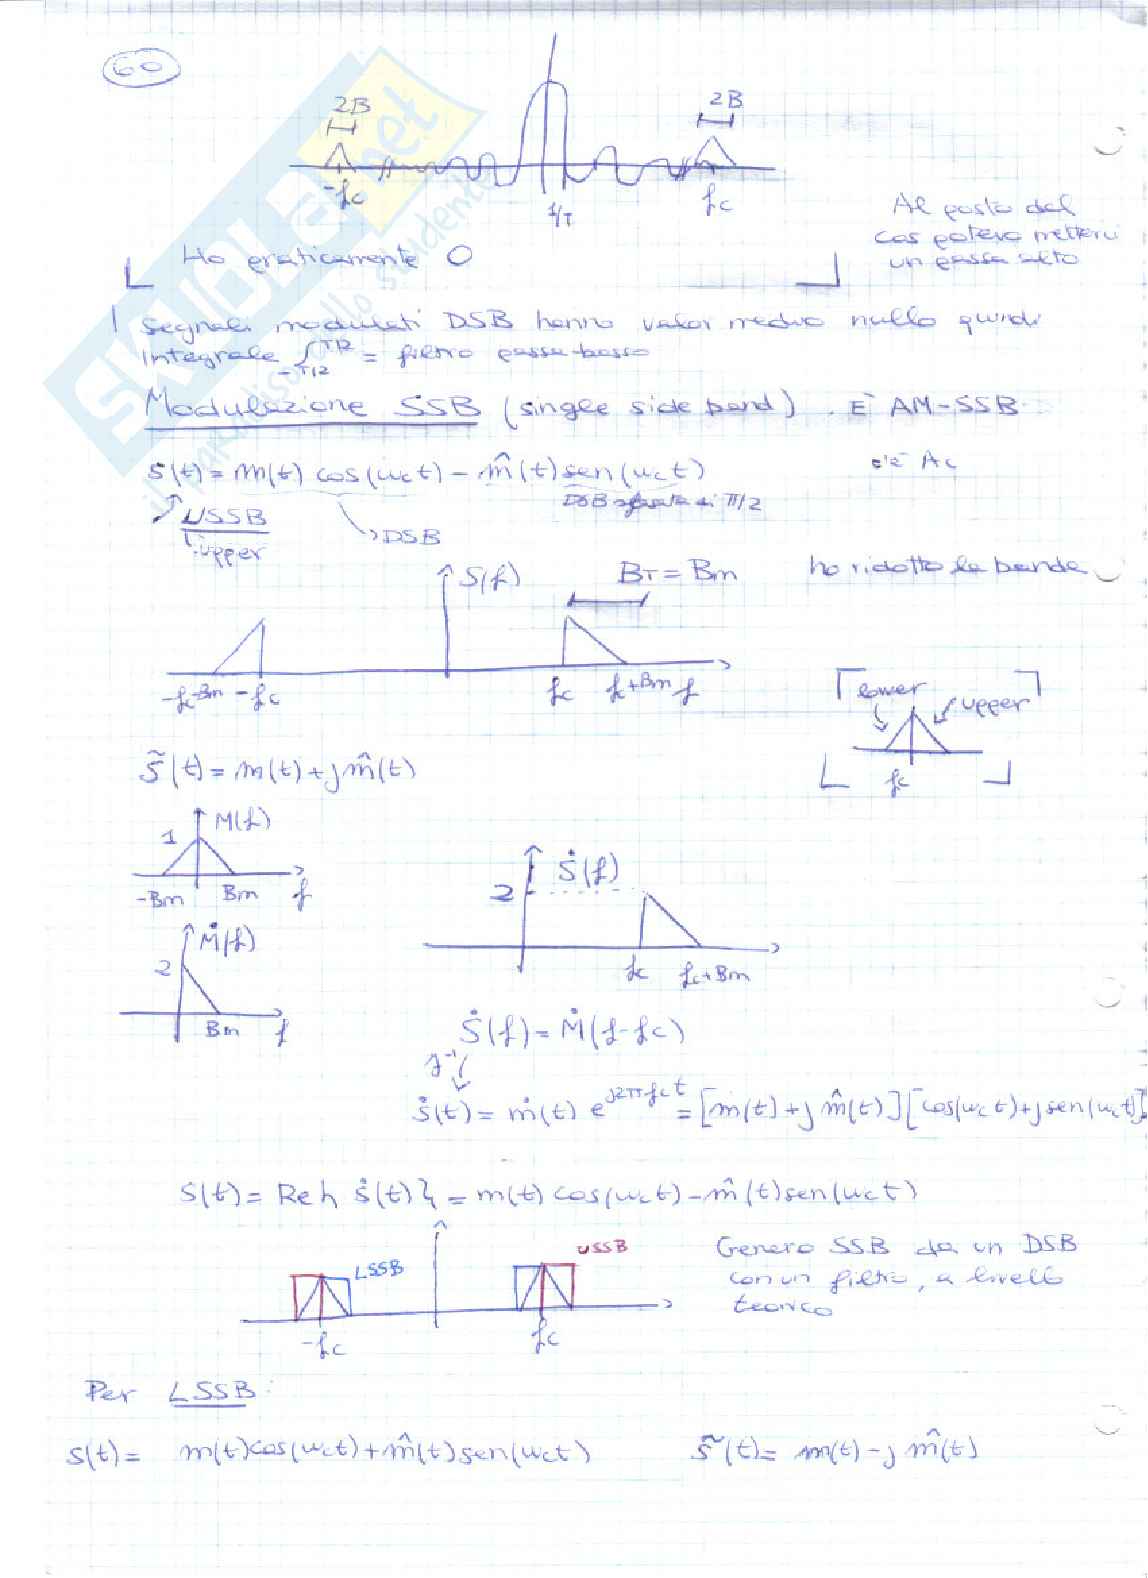 60
2B
2B
-fc
1/T
fc
Al posto del
cos potevo metterci
un passa alto
Ho praticamente 0
I segnali modulati DSB hanno valor medio nullo quindi
integrale ∫_{-T/2}^{T/2} = filtro passa-basso
Modulazione SSB (single side band). È AM-SSB
s(t) = m(t) cos(ωc t) - m̂(t) sen(ωc t)
c'è Ac
USSB
DSB sfasata di π/2
upper
DSB
S(f)
BT = Bm
ho ridotto la banda
-fc-Bm
-fc
fc
fc+Bm
f
lower
upper
fc
s̃(t) = m(t) + j m̂(t)
M(f)
1
-Bm
Bm
f
Ṡ(f)
2
fc
fc+Bm
Ṁ(f)
2
Bm
f
Ṡ(f) = Ṁ(f-fc)
ℱ⁻¹
ṡ(t) = ṁ(t) e^{j2πfct} = [m(t) + j m̂(t)] [cos(ωc t) + j sen(ωc t)]
s(t) = Re{ ṡ(t) } = m(t) cos(ωc t) - m̂(t) sen(ωc t)
LSSB
USSB
-fc
fc
Genero SSB da un DSB
con un filtro, a livello
teorico
Per LSSB:
s(t) = m(t) cos(ωc t) + m̂(t) sen(ωc t)
s̃(t) = m(t) - j m̂(t)
SKUOLA.net
il paradiso dello studente